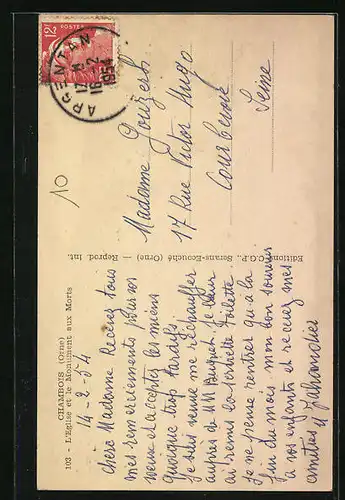 CHAMBOIS (Orne)
103 - L'Eglise et le Monument aux Morts
14-2-54
Chère Madame Recevez tous
mes remerciements pour vos
voeux et acceptez les miens
quoique trop tardifs
Je suis venue me réchauffer
auprès de MM Je leur
ai remis la serviette toilette.
Je ne pense rentrer qu'à la
fin du mois mon bon souvenir
à vos enfants et recevez mes
amitiés
Editions C.G.P., Serans-Ecouché (Orne) — Reprod. Int.
12F
POSTES
ARGENTAN
16-2
1954
10
Madame
17 Rue Victor Hugo
Courbevoie
Seine